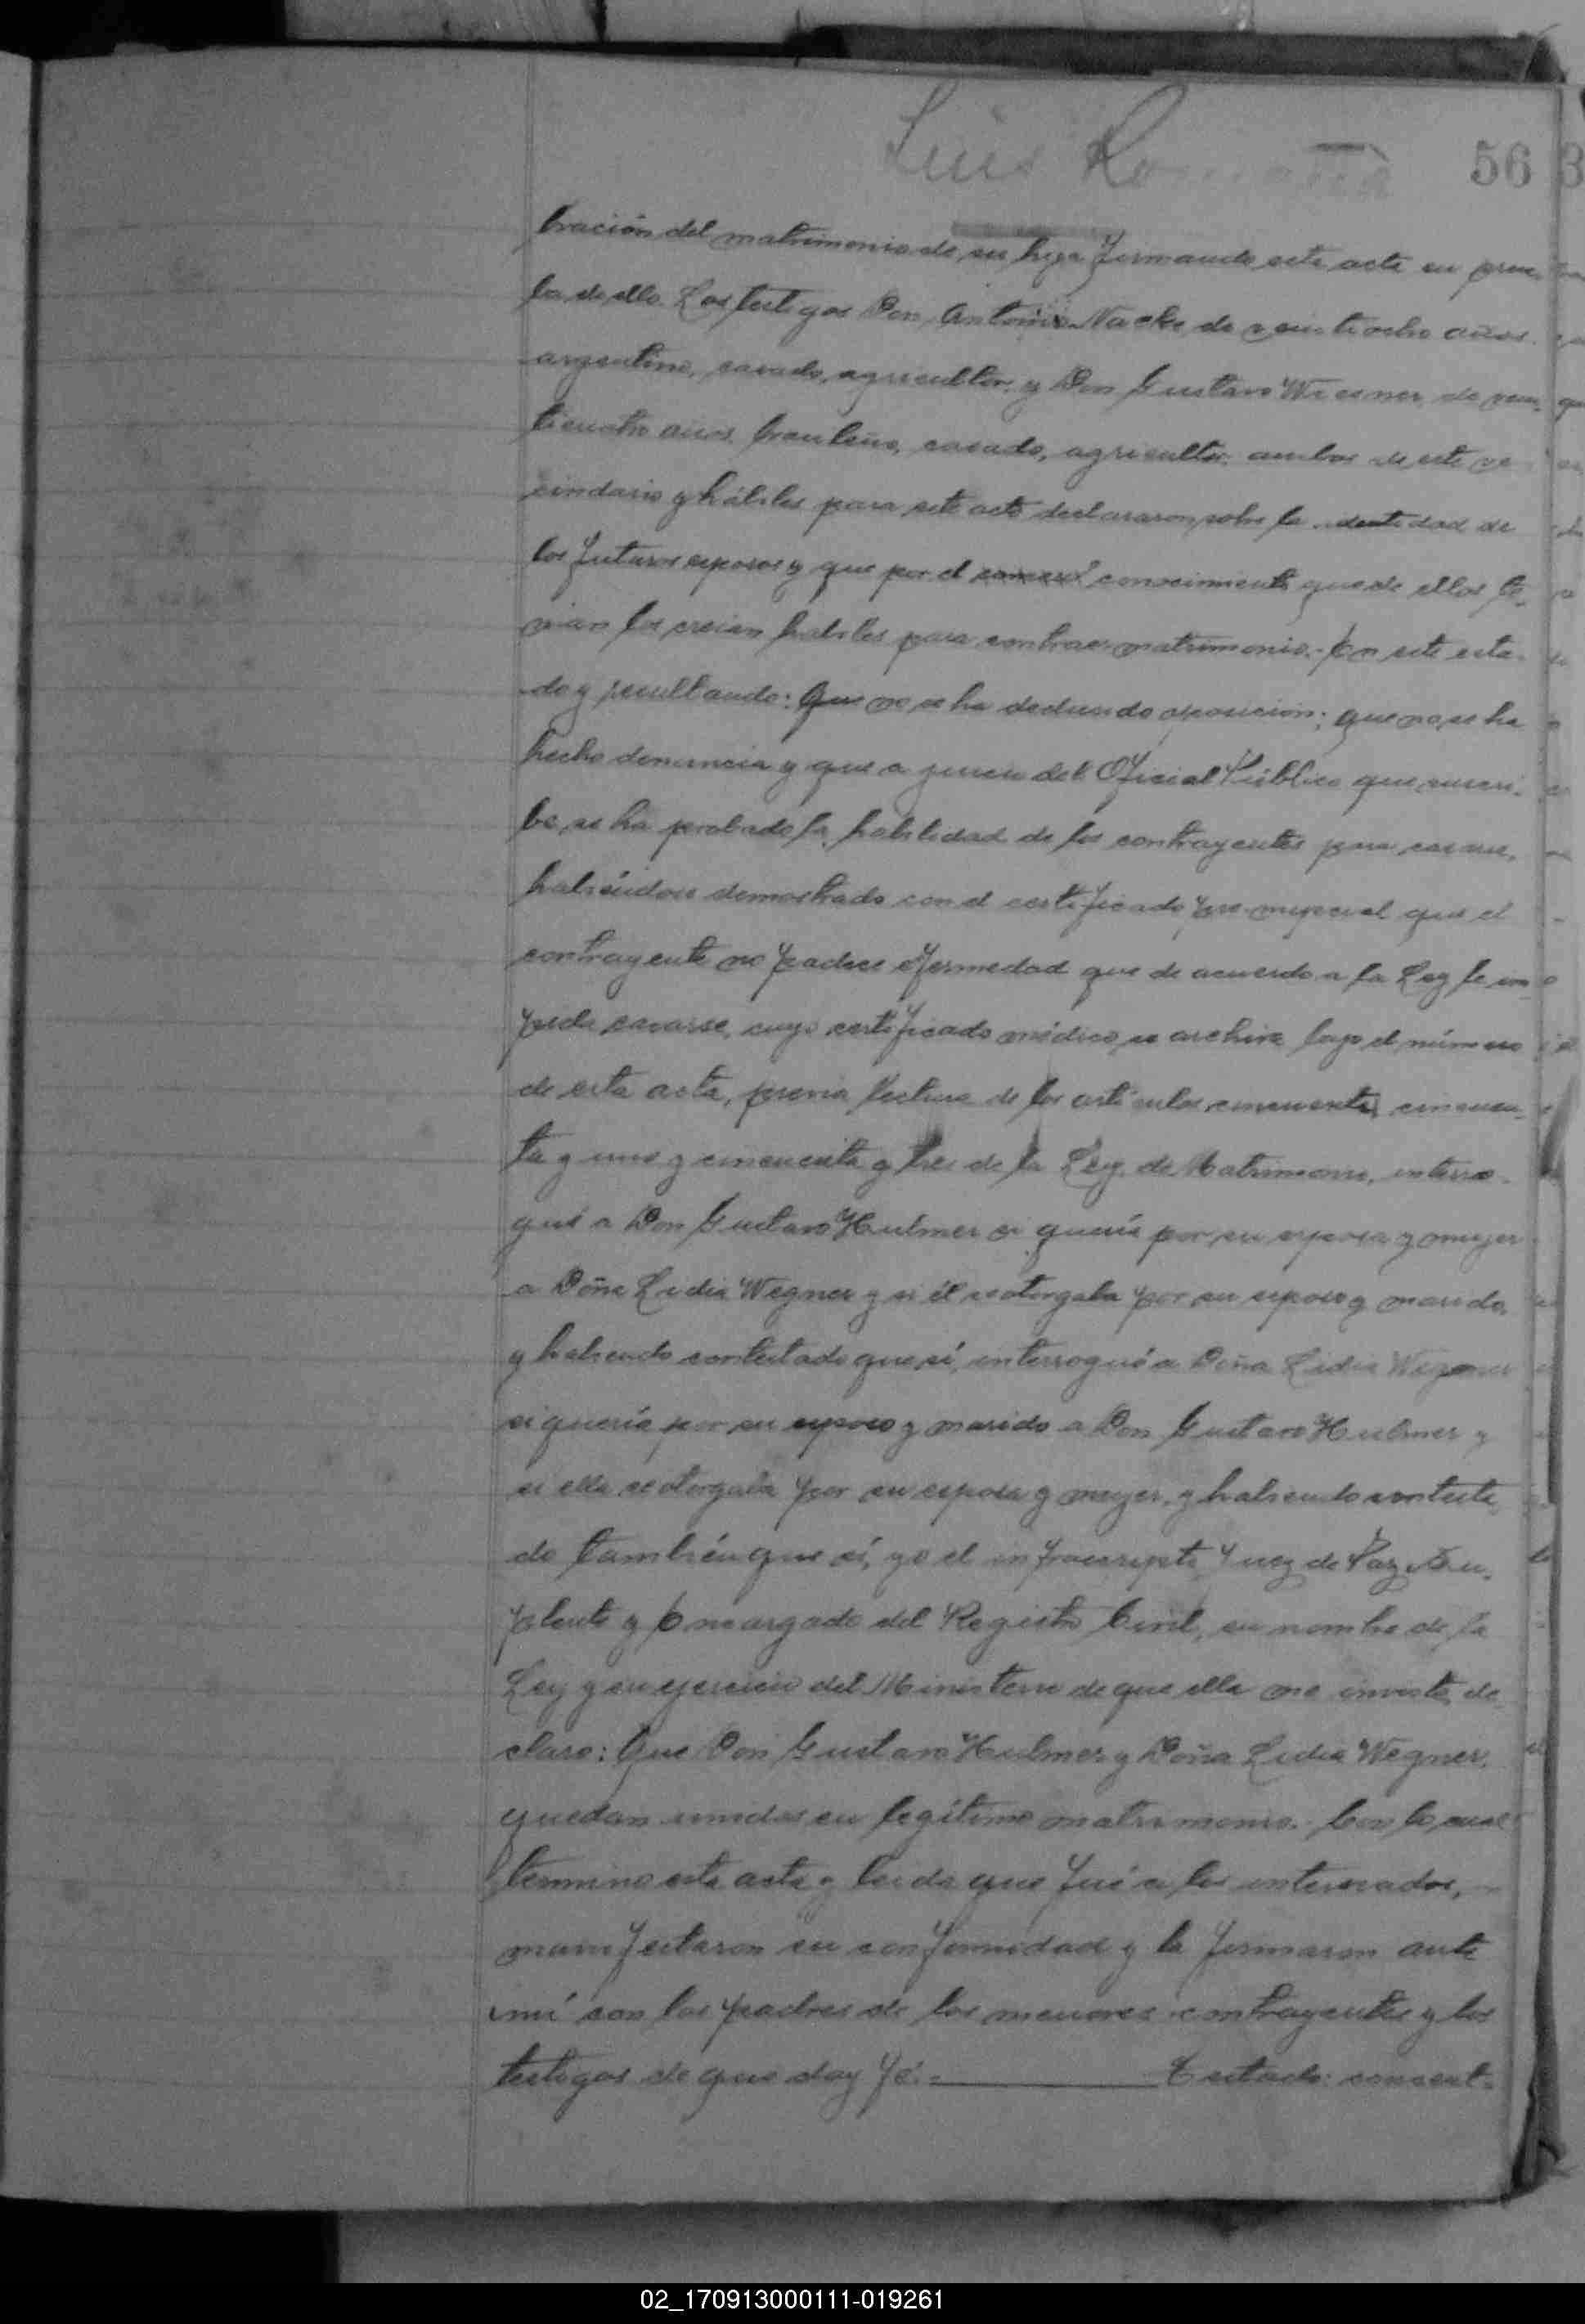 Luis
56
bración del matrimonio de su hija firmando esta acta en prue-
ba de ello. Los testigos Don Antonio Nacke de veintiocho años.
argentino, casado, agricultor, y Don Gustavo Wiesner, de vein-
ticuatro años, brasileño, casado, agricultor, ambos de este ve-
cindario y hábiles para este acto declararon sobre la identidad de
los futuros esposos y que por el conocimiento que de ellos te-
nian los creian habiles para contraer matrimonio.- En este esta-
do y resultando: Que no se ha deducido oposición; que no se ha
hecho denuncia y que a juicio del Oficial Público que suscri-
be, se ha probado la habilidad de los contrayentes para casarse,
habiéndose demostrado con el certificado pre-nupcial que el
contrayente no padece efermedad que de acuerdo a la Ley le im-
pida casarse, cuyo certificado médico se archiva bajo el número
de esta acta, previa lectura de los artículos cincuenta, cincuen-
ta y uno y cincuenta y tres de la Ley de Matrimonio, interro-
gué a Don Gustavo Hulmer si quería por su esposa y mujer
a Doña Lidia Wegner y si él se otorgaba por su esposo y marido,
y habiendo contestado que sí, interrogué a Doña Lidia Wegner
si quería por su esposo y marido a Don Gustavo Hulmer y
si ella se otorgaba por su esposa y mujer, y habiendo contesta-
do también que sí, yo el infrascripto Juez de Paz Su-
plente y Encargado del Registro Civil, en nombre de la
Ley y en ejercicio del Ministerio de que ella me inviste, de-
claro: Que Don Gustavo Hulmer y Doña Lidia Wegner,
quedan unidos en legítimo matrimonio. Con lo cual
termino esta acta y leida que fué a los interesados,
manifestaron su conformidad y la firmaron ante
mí con los padres de los menores contrayentes y los
testigos de que doy fé.- Testado: consent-
02_170913000111-019261